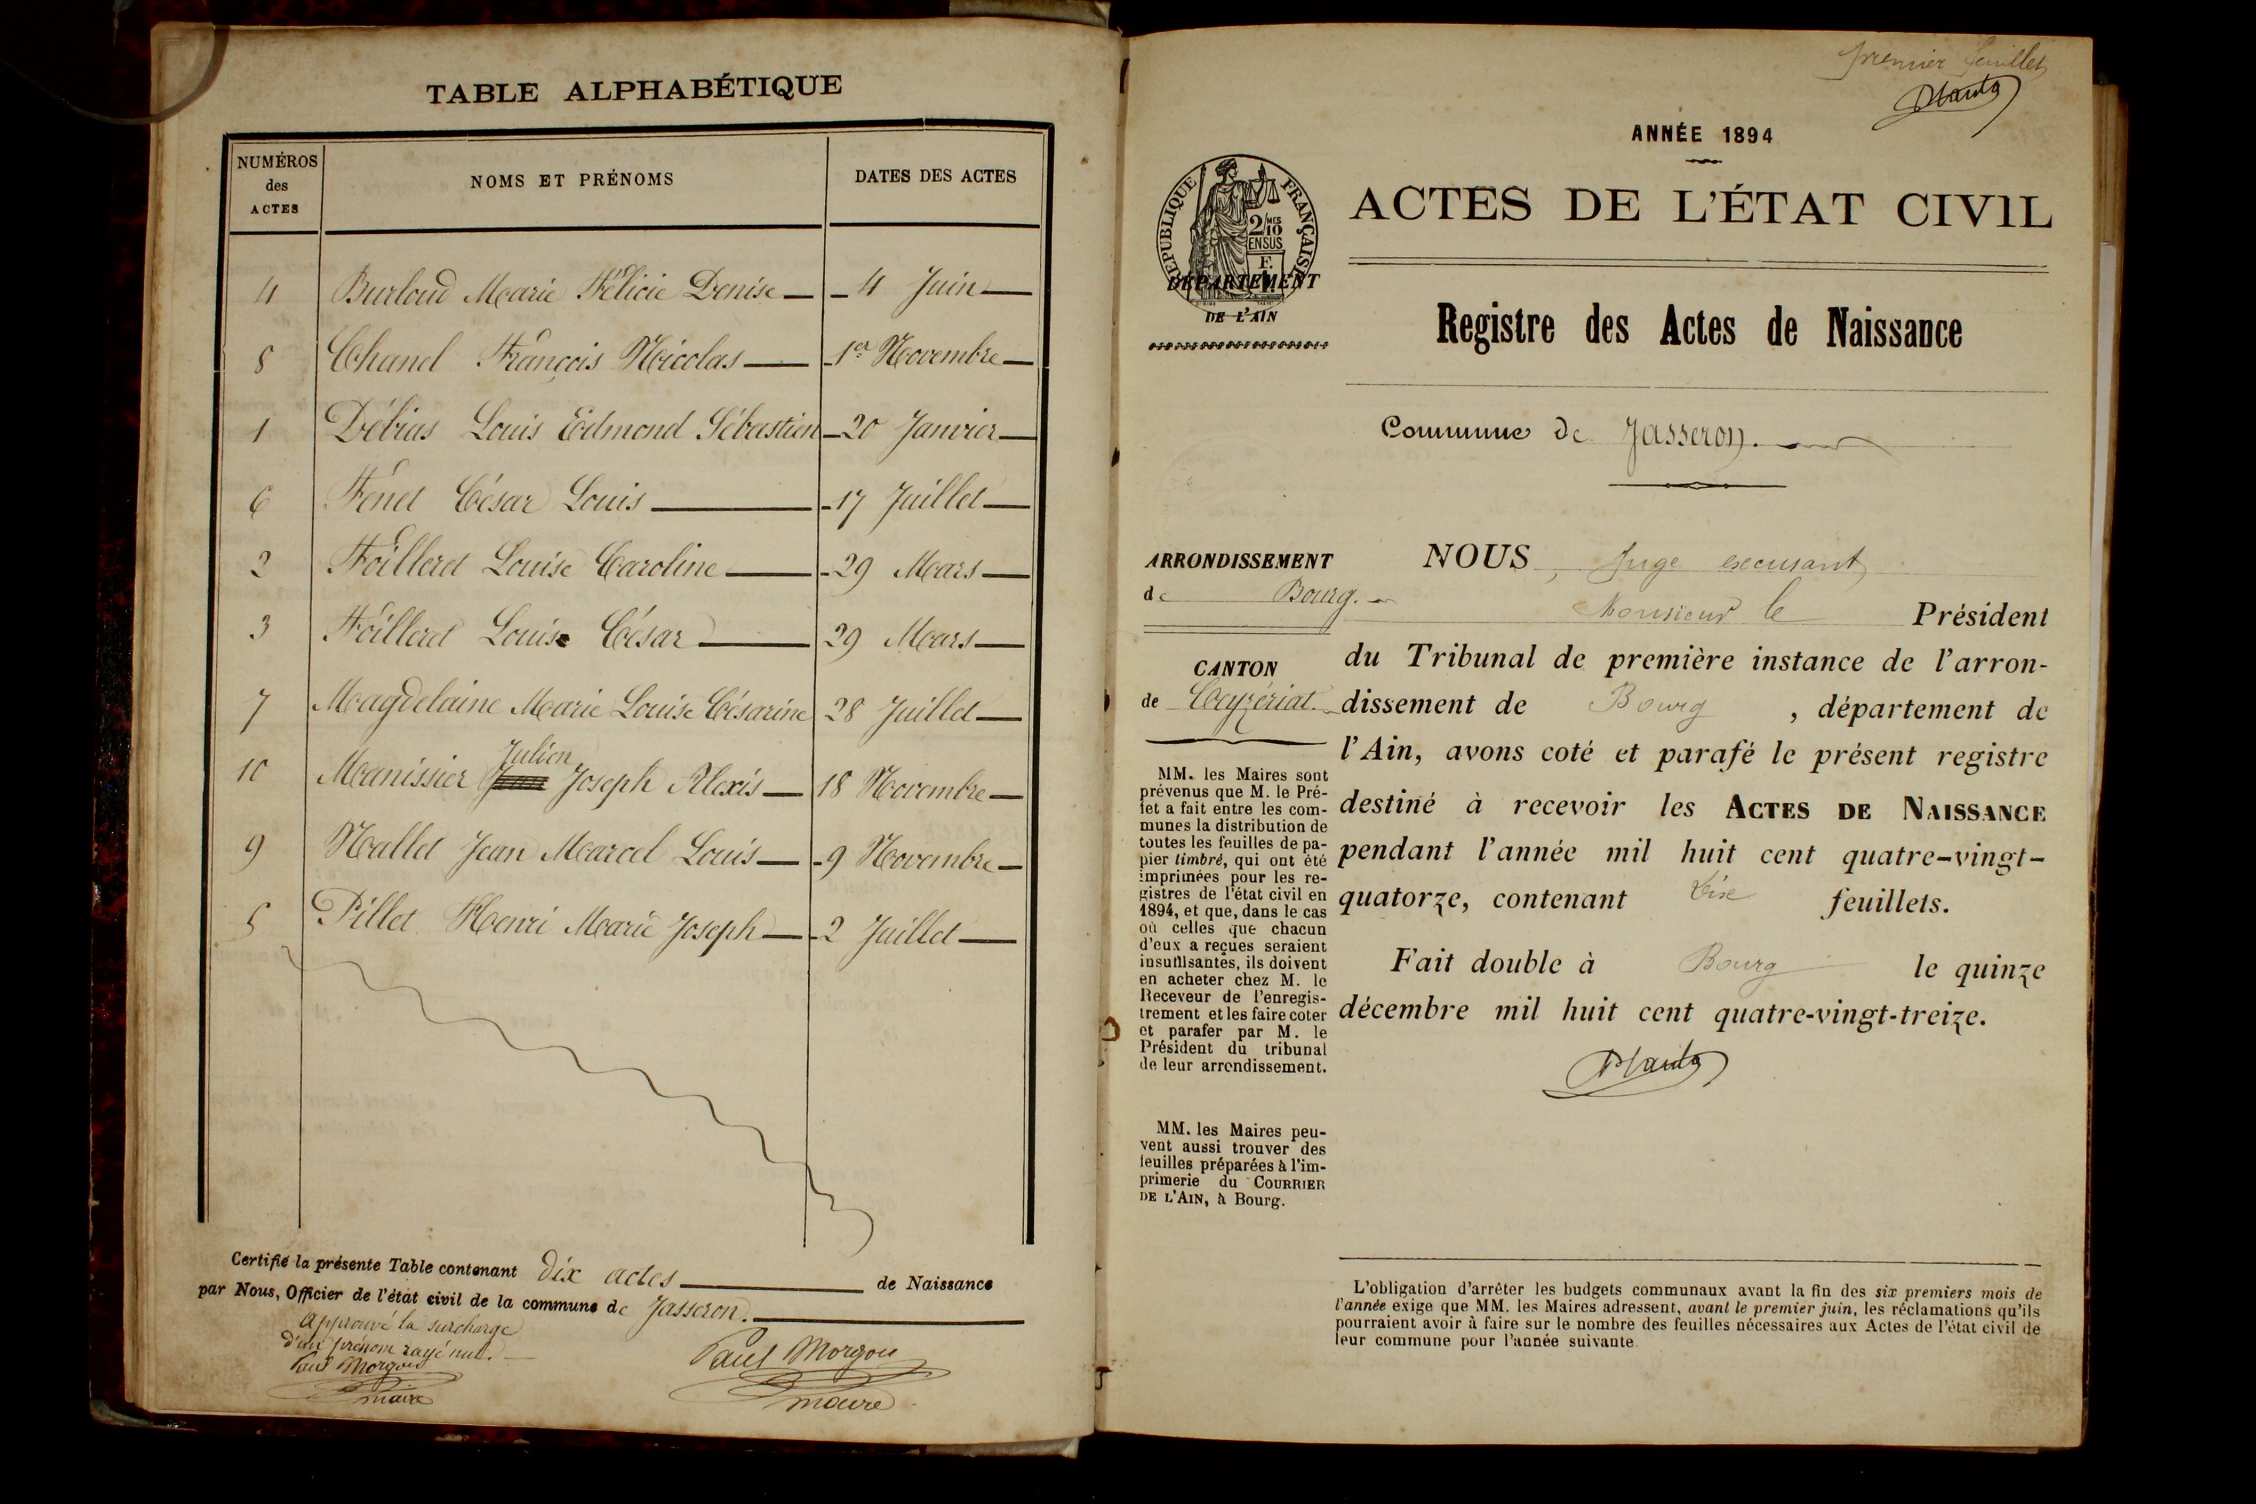 TABLE ALPHABÉTIQUE
NUMÉROS des ACTES
NOMS ET PRÉNOMS
DATES DES ACTES
4 Burloud Marie Félicie Denise 4 Juin
8 Chanel François Nicolas 1er Novembre
1 Débias Louis Edmond Sébastien 20 Janvier
6 Fénet César Louis 17 Juillet
2 Foilleret Louise Caroline 29 Mars
3 Foilleret Louis César 29 Mars
7 Magdelaine Marie Louise Césarine 28 Juillet
Julien
10 Manissier Joseph Alexis 18 Novembre
9 Nallet Jean Marcel Louis 9 Novembre
5 Pillet Henri Marie Joseph 2 Juillet
Certifié la présente Table contenant dix actes de Naissance
par Nous, Officier de l'état civil de la commune de Jasseron.
Approuvé la surcharge
d'un prénom rayé nul.
Paul Morgon
maire
Paul Morgon
maire
premier feuillet
ANNÉE 1894
RÉPUBLIQUE FRANÇAISE
2/10
MES
EN SUS
DÉPARTEMENT
DE L'AIN
ACTES DE L'ÉTAT CIVIL
Registre des Actes de Naissance
Commune de Jasseron.
ARRONDISSEMENT
de Bourg.
CANTON
de Ceyzériat.
MM. les Maires sont
prévenus que M. le Pré-
fet a fait entre les com-
munes la distribution de
toutes les feuilles de pa-
pier timbré, qui ont été
imprimées pour les re-
gistres de l'état civil en
1894, et que, dans le cas
où celles que chacun
d'eux a reçues seraient
insuffisantes, ils doivent
en acheter chez M. le
Receveur de l'enregis-
trement et les faire coter
et parafer par M. le
Président du tribunal
de leur arrondissement.
MM. les Maires peu-
vent aussi trouver des
feuilles préparées à l'im-
primerie du COURRIER
DE L'AIN, à Bourg.
NOUS, Juge excusant
Monsieur le Président
du Tribunal de première instance de l'arron-
dissement de Bourg, département de
l'Ain, avons coté et parafé le présent registre
destiné à recevoir les ACTES DE NAISSANCE
pendant l'année mil huit cent quatre-vingt-
quatorze, contenant feuillets.
Fait double à Bourg le quinze
décembre mil huit cent quatre-vingt-treize.
L'obligation d'arrêter les budgets communaux avant la fin des six premiers mois de
l'année exige que MM. les Maires adressent, avant le premier juin, les réclamations qu'ils
pourraient avoir à faire sur le nombre des feuilles nécessaires aux Actes de l'état civil de
leur commune pour l'année suivante